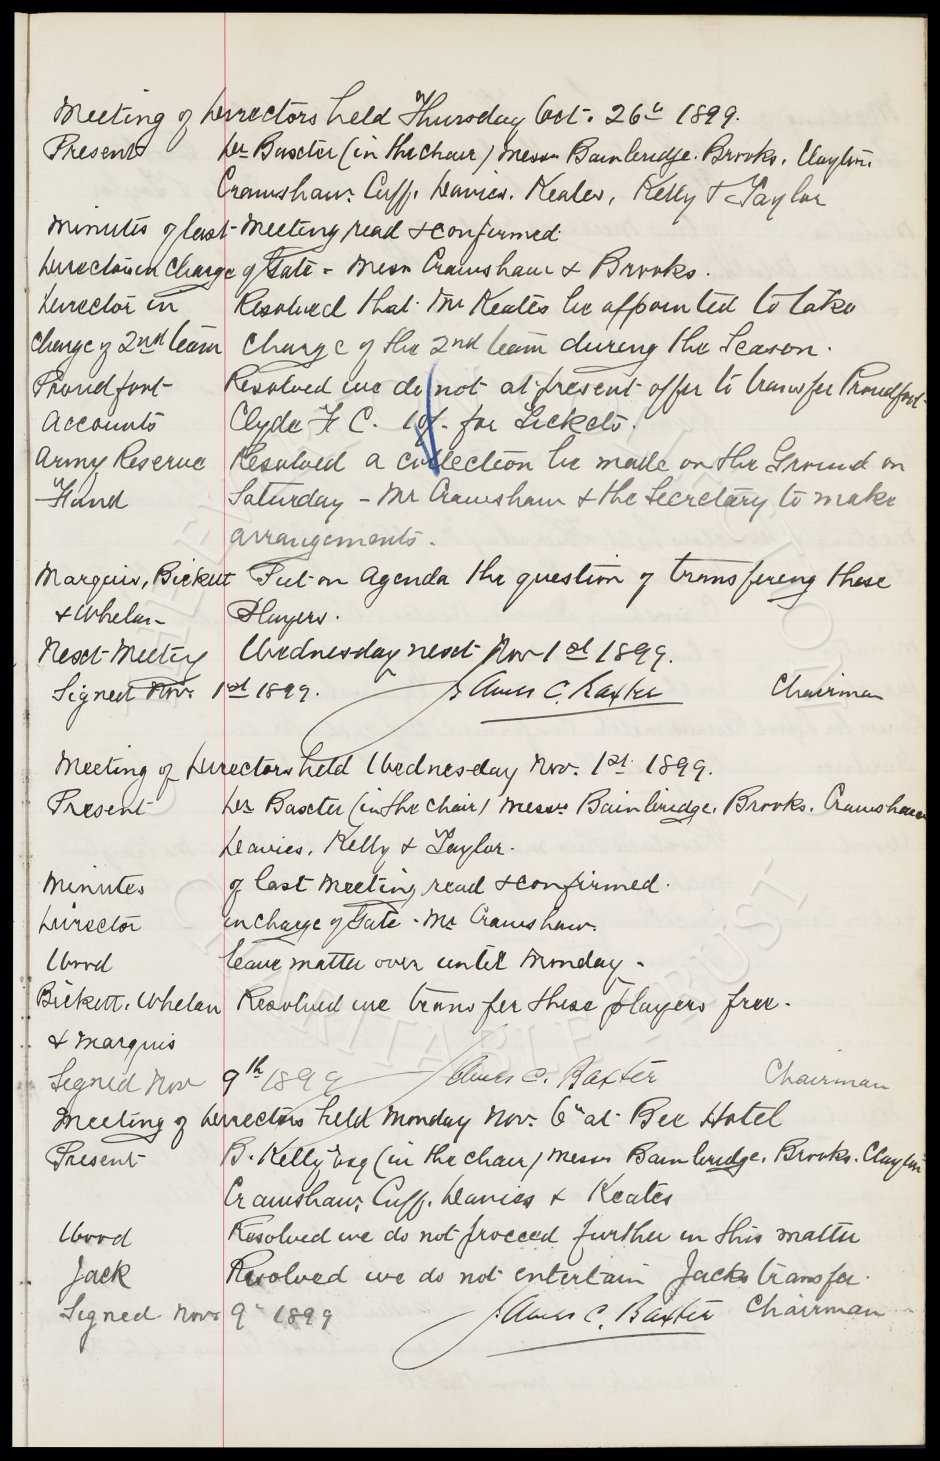 Meeting of Directors held Thursday Oct. 26th 1899.
Present Dr Baxter (in the chair) Messrs Bainbridge. Brooks. Clayton.
Crawshaw. Cuff. Davies. Keates, Kelly & Taylor
Minutes of last Meeting read & confirmed
Directors in Charge of Gate - Messrs Crawshaw & Brooks.
Director in Resolved that Mr Keates be appointed to take
Charge of 2nd team Charge of the 2nd team during the Season.
Proudfoot Resolved we do not at present offer to transfer Proudfoot.
Accounts Clyde F C. 10/- for Tickets.
Army Reserve Resolved a collection be made on the Ground on
Fund Saturday - Mr Crawshaw & the Secretary to make
arrangements.
Marquis, Bickett Put on Agenda the question of transfering these
& Whelan Players.
Next Meeting Wednesday next Nov 1st 1899.
Signed Nov. 1st 1899. James C. Baxter Chairman
Meeting of Directors held Wednesday Nov. 1st 1899.
Present Dr Baxter (in the chair) Messrs Bainbridge. Brooks. Crawshaw
Davies. Kelly & Taylor.
Minutes of last Meeting read & confirmed.
Director in charge of Gate - Mr Crawshaw.
Wood leave matter over until Monday.
Bickett. Whelan Resolved we transfer these players free.
& Marquis
Signed Nov 9th 1899 James C. Baxter Chairman
Meeting of Directors held Monday Nov. 6th at Bee Hotel
Present B. Kelly Esq (in the chair) Messrs Bainbridge. Brooks. Clayton
Crawshaw, Cuff. Davies & Keates
Wood Resolved we do not proceed further in this matter
Jack Resolved we do not entertain Jacks transfer.
Signed Nov 9th 1899 James C. Baxter Chairman
EVERTON
CHARITABLE TRUST